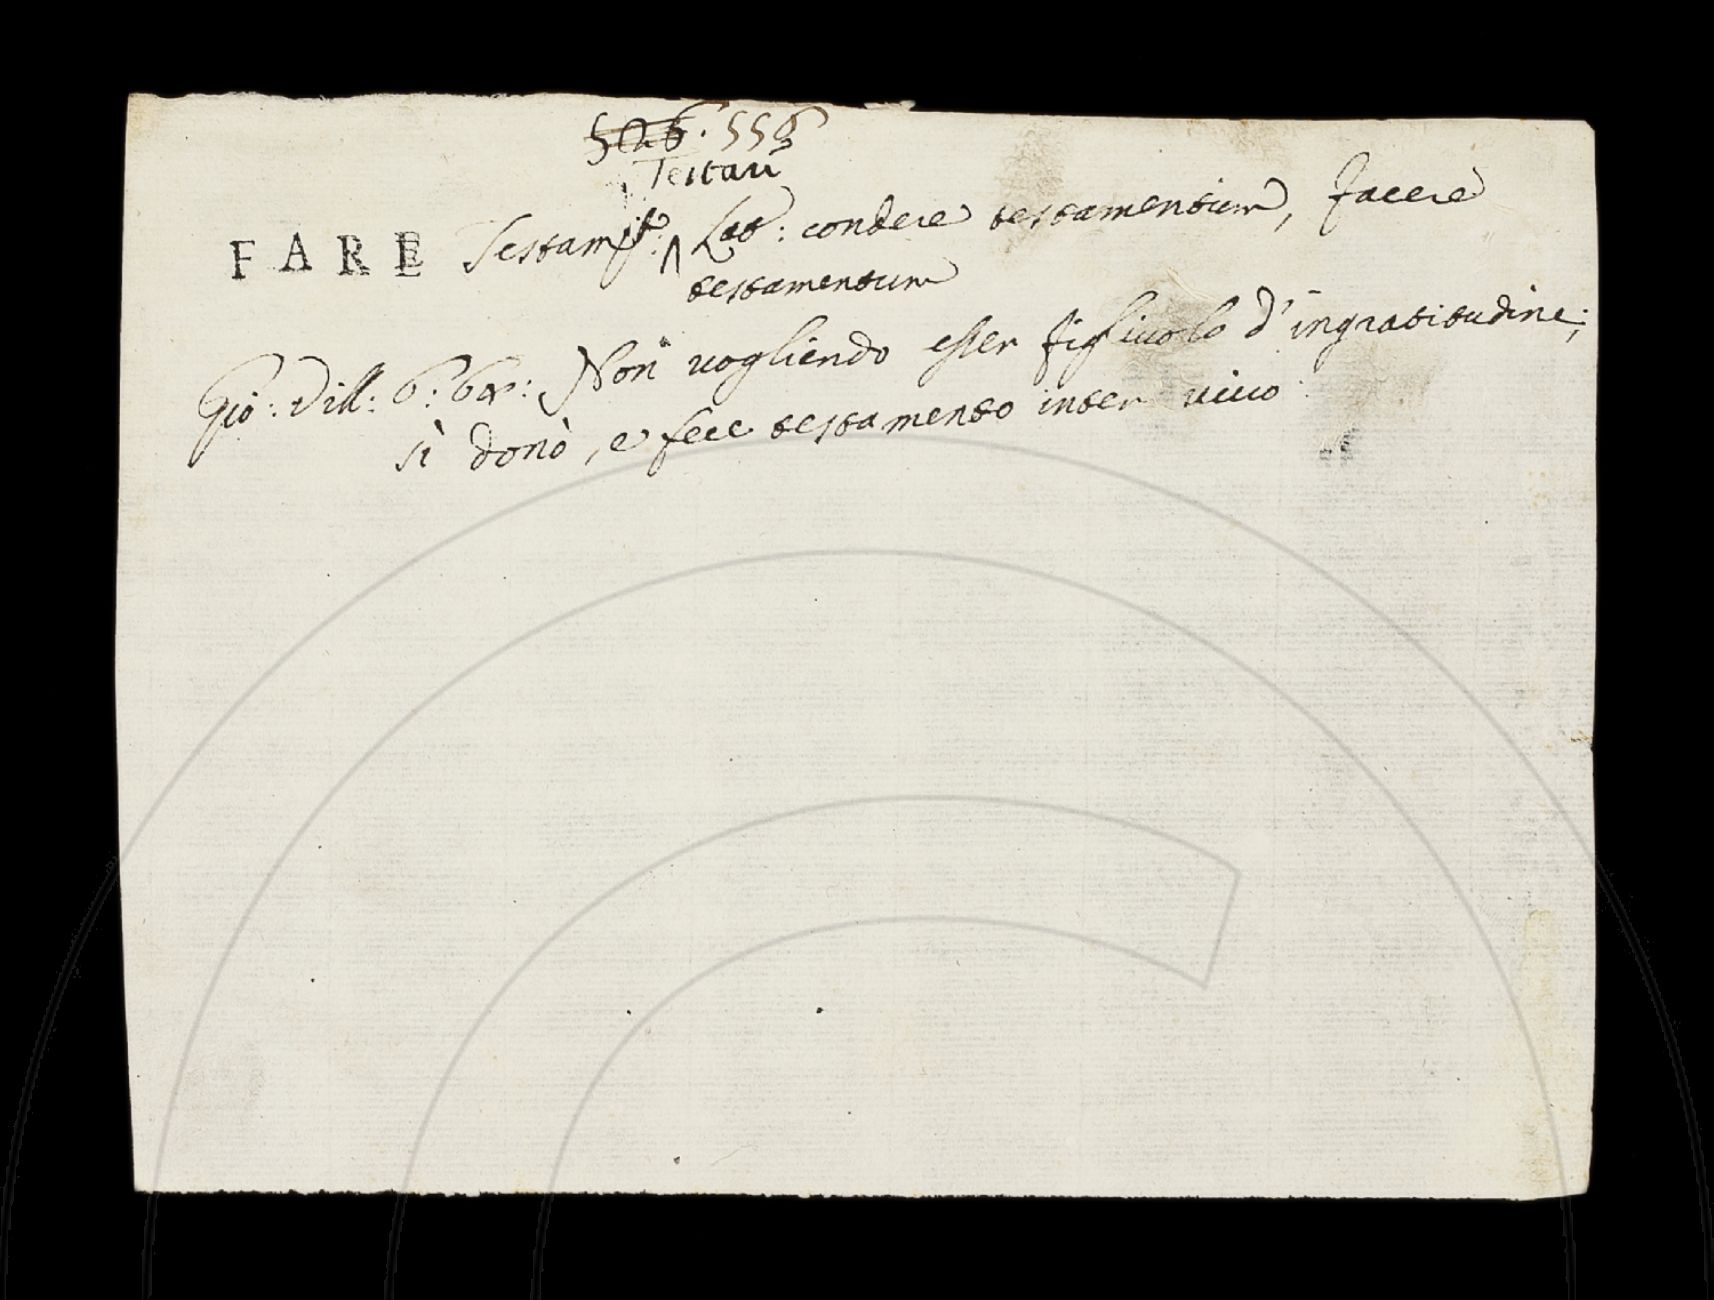 526. 556
Testari
FARE Testamto: ∧ Lat: condere testamentum, facere
testamentum
Gio: Vill: 6: 64: Non vogliendo esser figliuolo d'ingratitudine;
sì donò, e fece testamento inter vivo